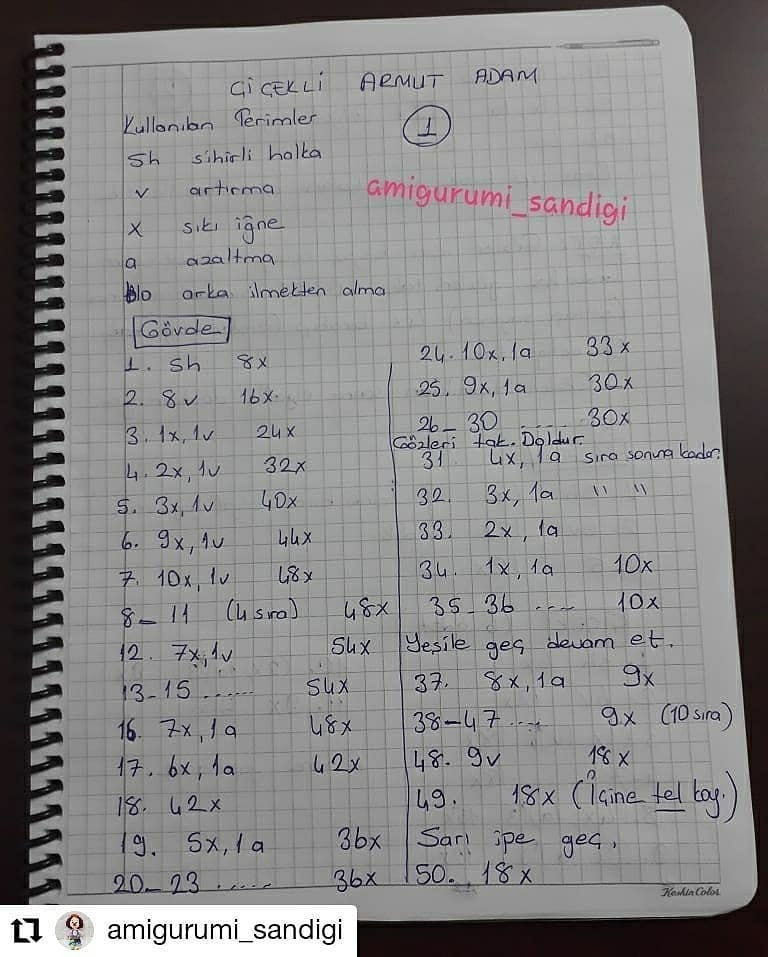 ÇİÇEKLİ ARMUT ADAM
Kullanılan Terimler
1
Sh sihirli halka
v artırma
amigurumi_sandigi
x sıkı iğne
a azaltma
blo arka ilmekten alma
Gövde
1. Sh 8x
2. 8v 16x
3. 1x, 1v 24x
4. 2x, 1v 32x
5. 3x, 1v 40x
6. 9x, 1v 44x
7. 10x, 1v 48x
8-11 (4 sıra) 48x
12. 7x, 1v 54x
13-15 ...... 54x
16. 7x, 1a 48x
17. 6x, 1a 42x
18. 42x
19. 5x, 1a 36x
20-23 ...... 36x
24. 10x, 1a 33x
25. 9x, 1a 30x
26-30 ..... 30x
Gözleri tak. Doldur.
31 4x, 1a sıra sonuna kadar.
32. 3x, 1a " "
33. 2x, 1a
34. 1x, 1a 10x
35-36 .... 10x
Yeşile geç devam et.
37. 8x, 1a 9x
38-47 .... 9x (10 sıra)
48. 9v 18x
49. 18x (İçine tel koy.)
Sarı ipe geç.
50. 18x
KeskinColor
amigurumi_sandigi